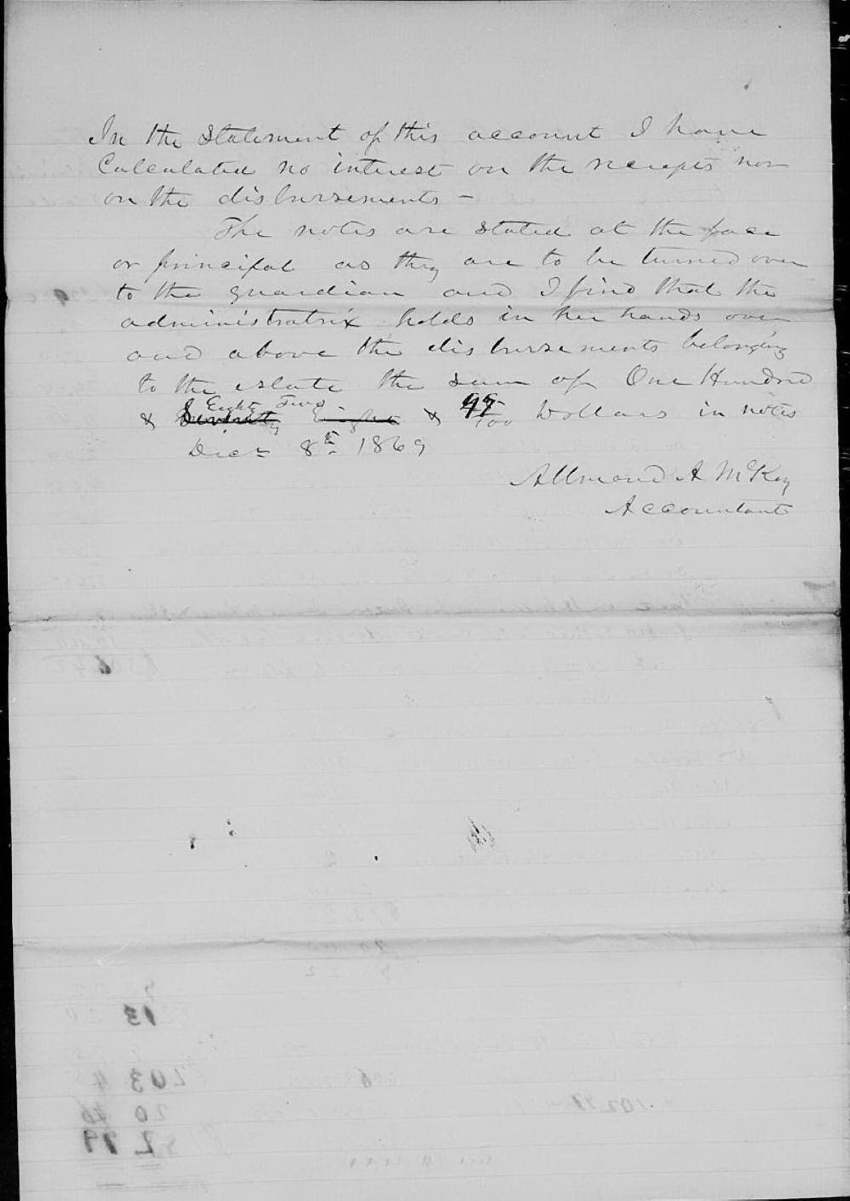 In the Statement of this account I have
Calculated no interest on the receipts nor
on the disbursements –
The notes are stated at the face
or principal as they are to be turned over
to the guardian and I find that the
administratrix holds in her hands over
and above the disbursements belonging
to the estate the sum of One Hundred
Eighty Two
& Seventy Eight & /100 Dollars in notes
Decr 8th 1869
Allmond A McKoy
Accountant